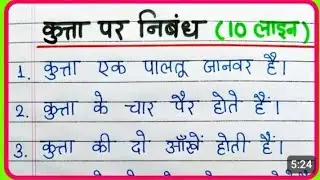 कुत्ता पर निबंध (10 लाइन)
1. कुत्ता एक पालतू जानवर है।
2. कुत्ता के चार पैर होते हैं।
3. कुत्ता की दो आँखें होती हैं।
5:24